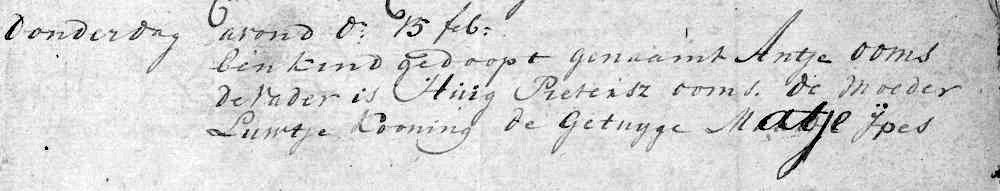 Donderdag avond d: 15 feb:
Een kind gedoopt genaamt Antje ooms
de Vader is Huig Pietersz ooms. de Moeder
Luwtje Kooning de Getuyge Matje Ypes